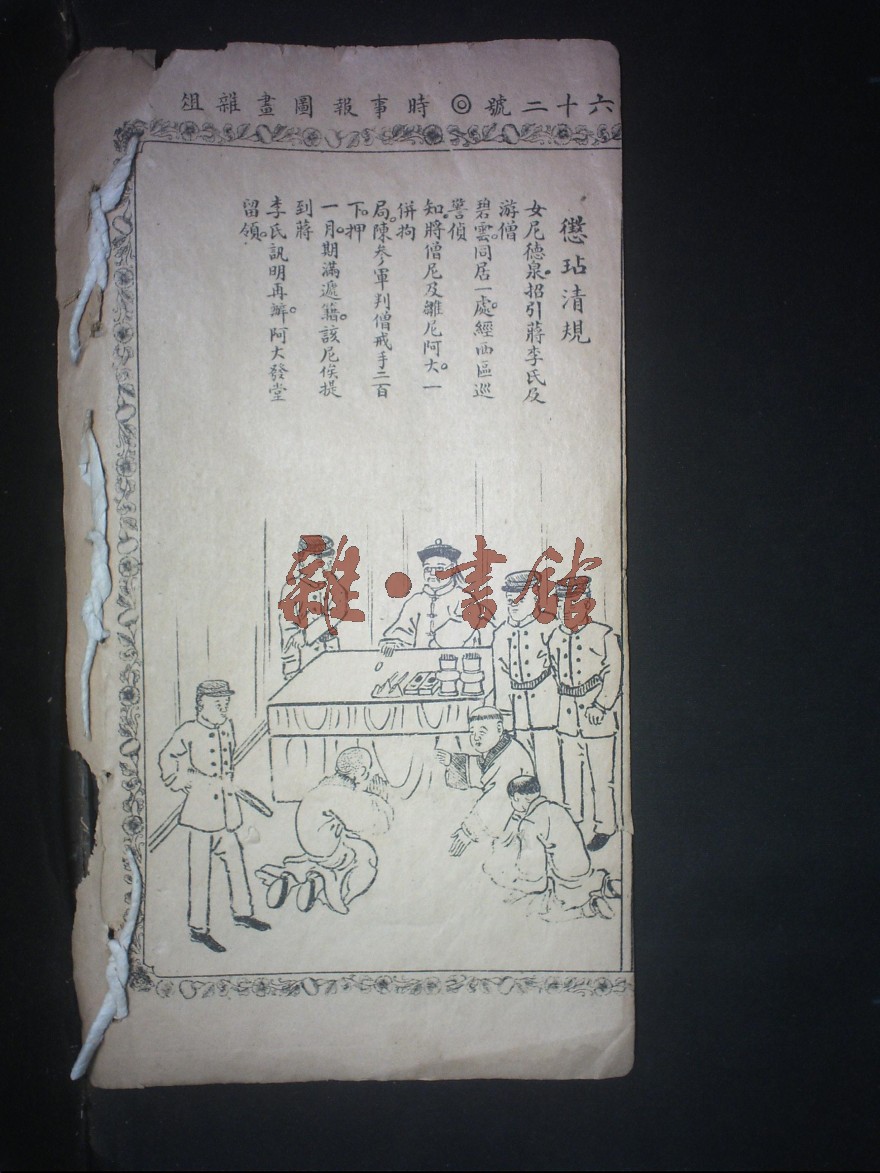 六十二號◎時事報圖畫雜俎
懲玷清規
女尼德泉。招引蔣李氏及
游僧
碧雲。同居一處。經西區巡
警偵
知。將僧尼及雛尼阿大。一
併拘
局。陳參軍判僧戒手二百
下。押
一月。期滿遞籍。該尼俟提
到蔣
李氏訊明再辦。阿大發堂
留領。
雜·書館